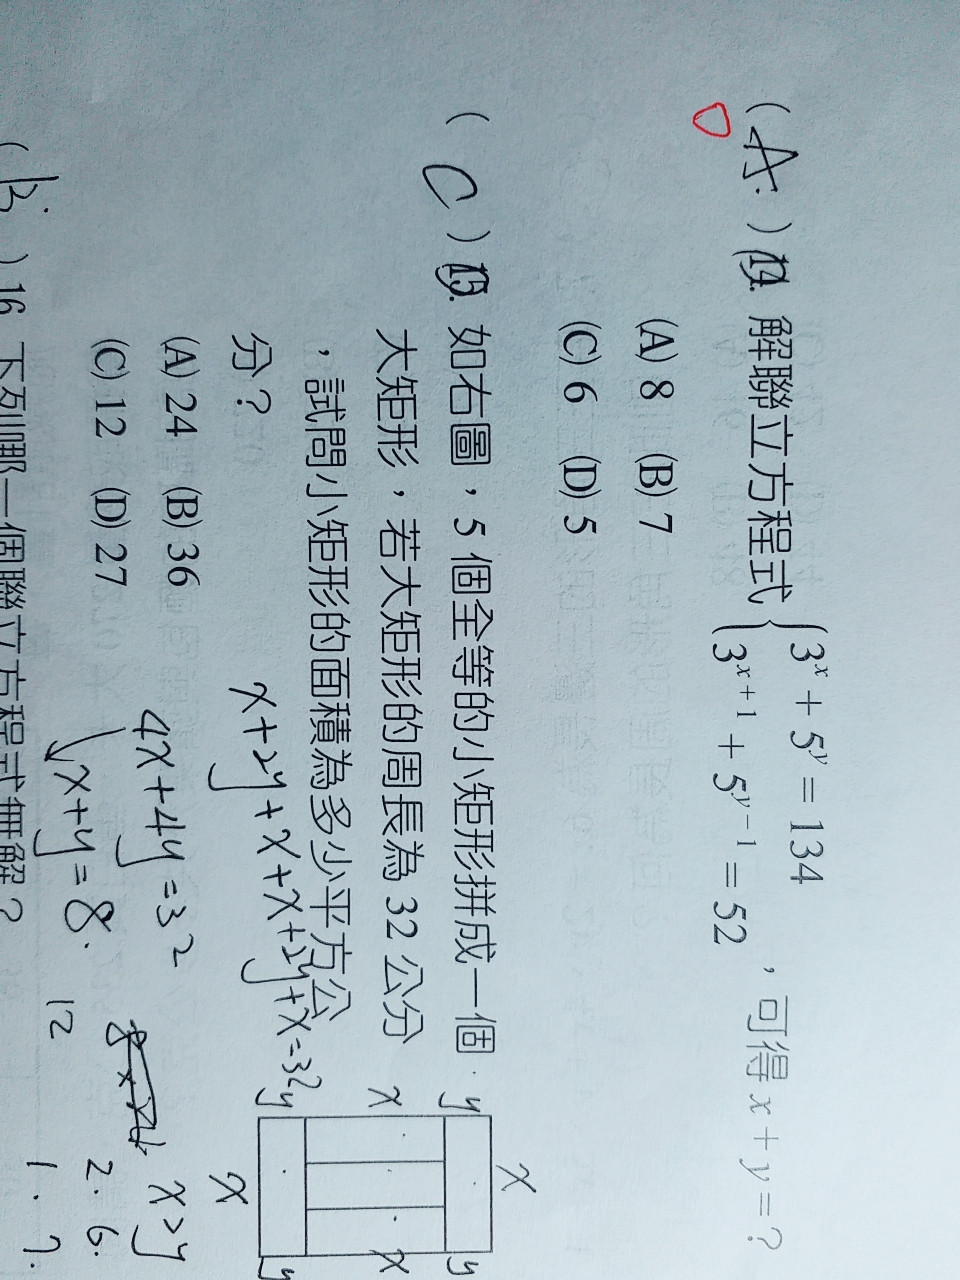 (A.) 14. 解聯立方程式 { 3^x + 5^y = 134
3^{x+1} + 5^{y-1} = 52 ，可得 x + y = ?
(A) 8 (B) 7
(C) 6 (D) 5
(C) 15. 如右圖，5 個全等的小矩形拼成一個
大矩形，若大矩形的周長為 32 公分
，試問小矩形的面積為多少平方公
分？
(A) 24 (B) 36
(C) 12 (D) 27
x+2y+x+x+2y+x=32
4x+4y=32
x+y=8.
12
x>y
2.6.
1.7.
x
y
y
x
x
y
y
x
(B.) 16 下列哪一個聯立方程式無解？